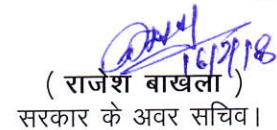 16/7/18
( राजेश बाखला )
सरकार के अवर सचिव।